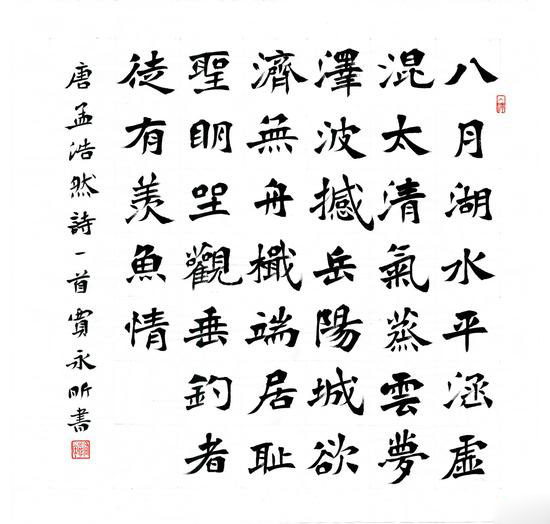 八月湖水平涵虛
混太清氣蒸雲夢
澤波撼岳陽城欲
濟無舟檝端居耻
聖明坐觀垂釣者
徒有羨魚情
唐孟浩然詩一首賈永昕書